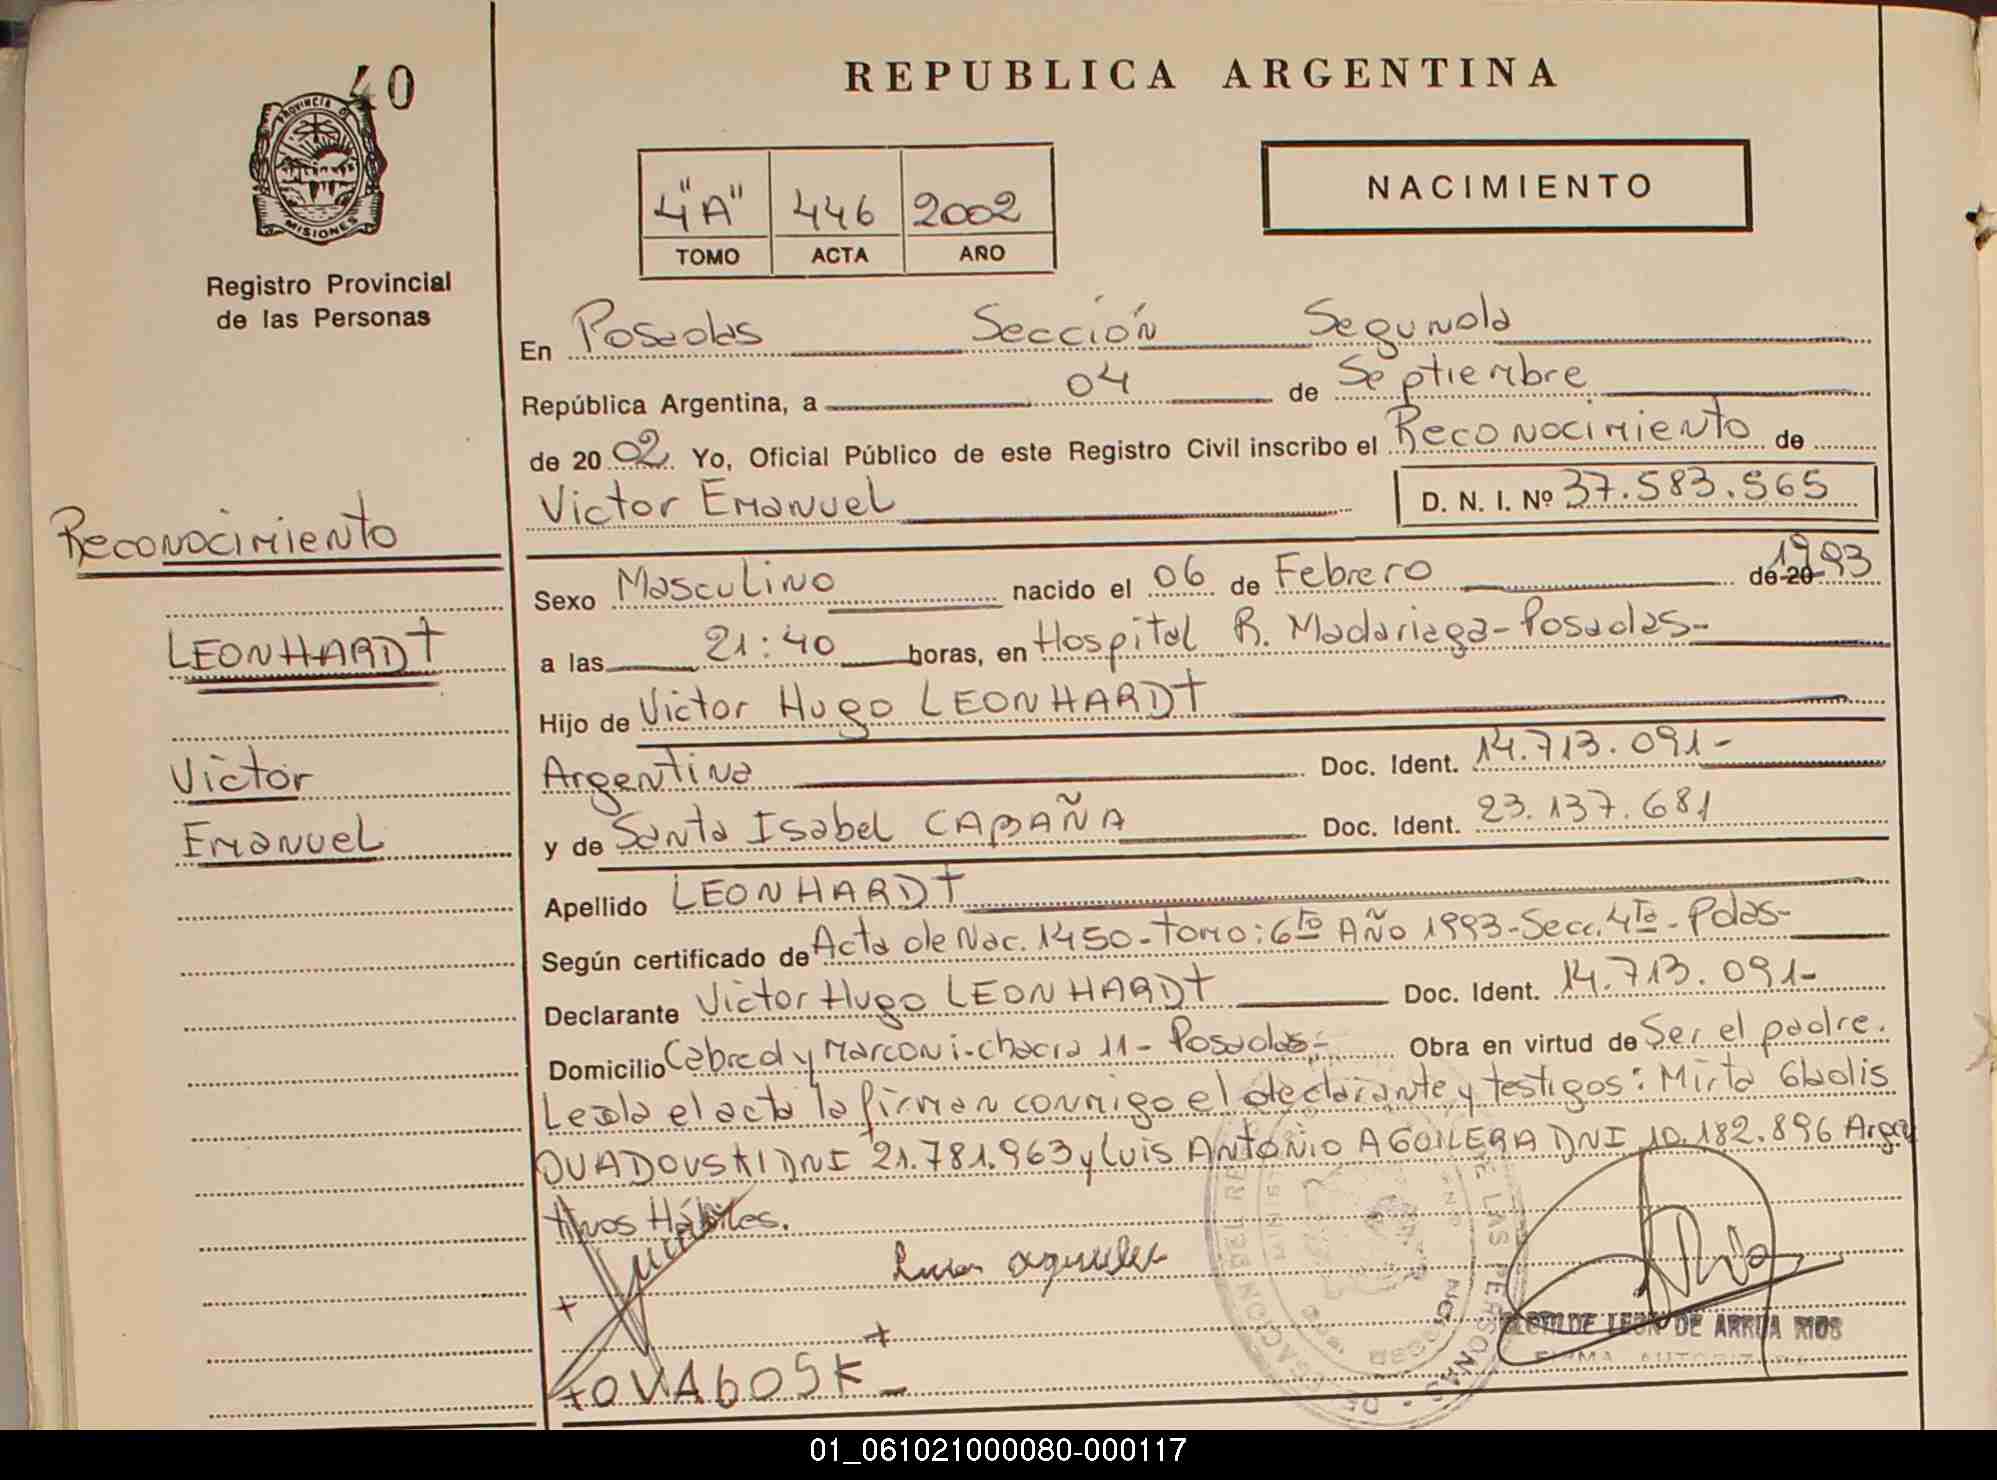 40
PROVINCIA DE
MISIONES
Registro Provincial
de las Personas
REPUBLICA ARGENTINA
4"A" 446 2002
TOMO ACTA AÑO
NACIMIENTO
En Posadas Sección Segunda
República Argentina, a 04 de Septiembre
de 2002 Yo, Oficial Público de este Registro Civil inscribo el Reconocimiento de
Victor Emanuel D. N. I. Nº 37.583.565
Reconocimiento
LEONHARDT
Victor
Emanuel
Sexo Masculino nacido el 06 de Febrero de 20 1993
a las 21:40 horas, en Hospital R. Madariaga-Posadas-
Hijo de Victor Hugo LEONHARDT
Argentina Doc. Ident. 14.713.091-
y de Santa Isabel CABAÑA Doc. Ident. 23.137.681
Apellido LEONHARDT
Según certificado de Acta de Nac. 1450-Tomo: 6to Año 1993-Secc. 4ta-Pdas-
Declarante Victor Hugo LEONHARDT Doc. Ident. 14.713.091-
Domicilio Cabred y Marconi-chacra 11- Posadas- Obra en virtud de Ser el padre.
Leida el acta la firman conmigo el declarante y testigos: Mirta Gladis
OVADOVSKI DNI 21.781.963 y Luis Antonio AGUILERA DNI 10.182.896 Argen
tinos Hábiles.
LEON DE ARRUA RIOS
FIRMA AUTORIZADA
01_061021000080-000117